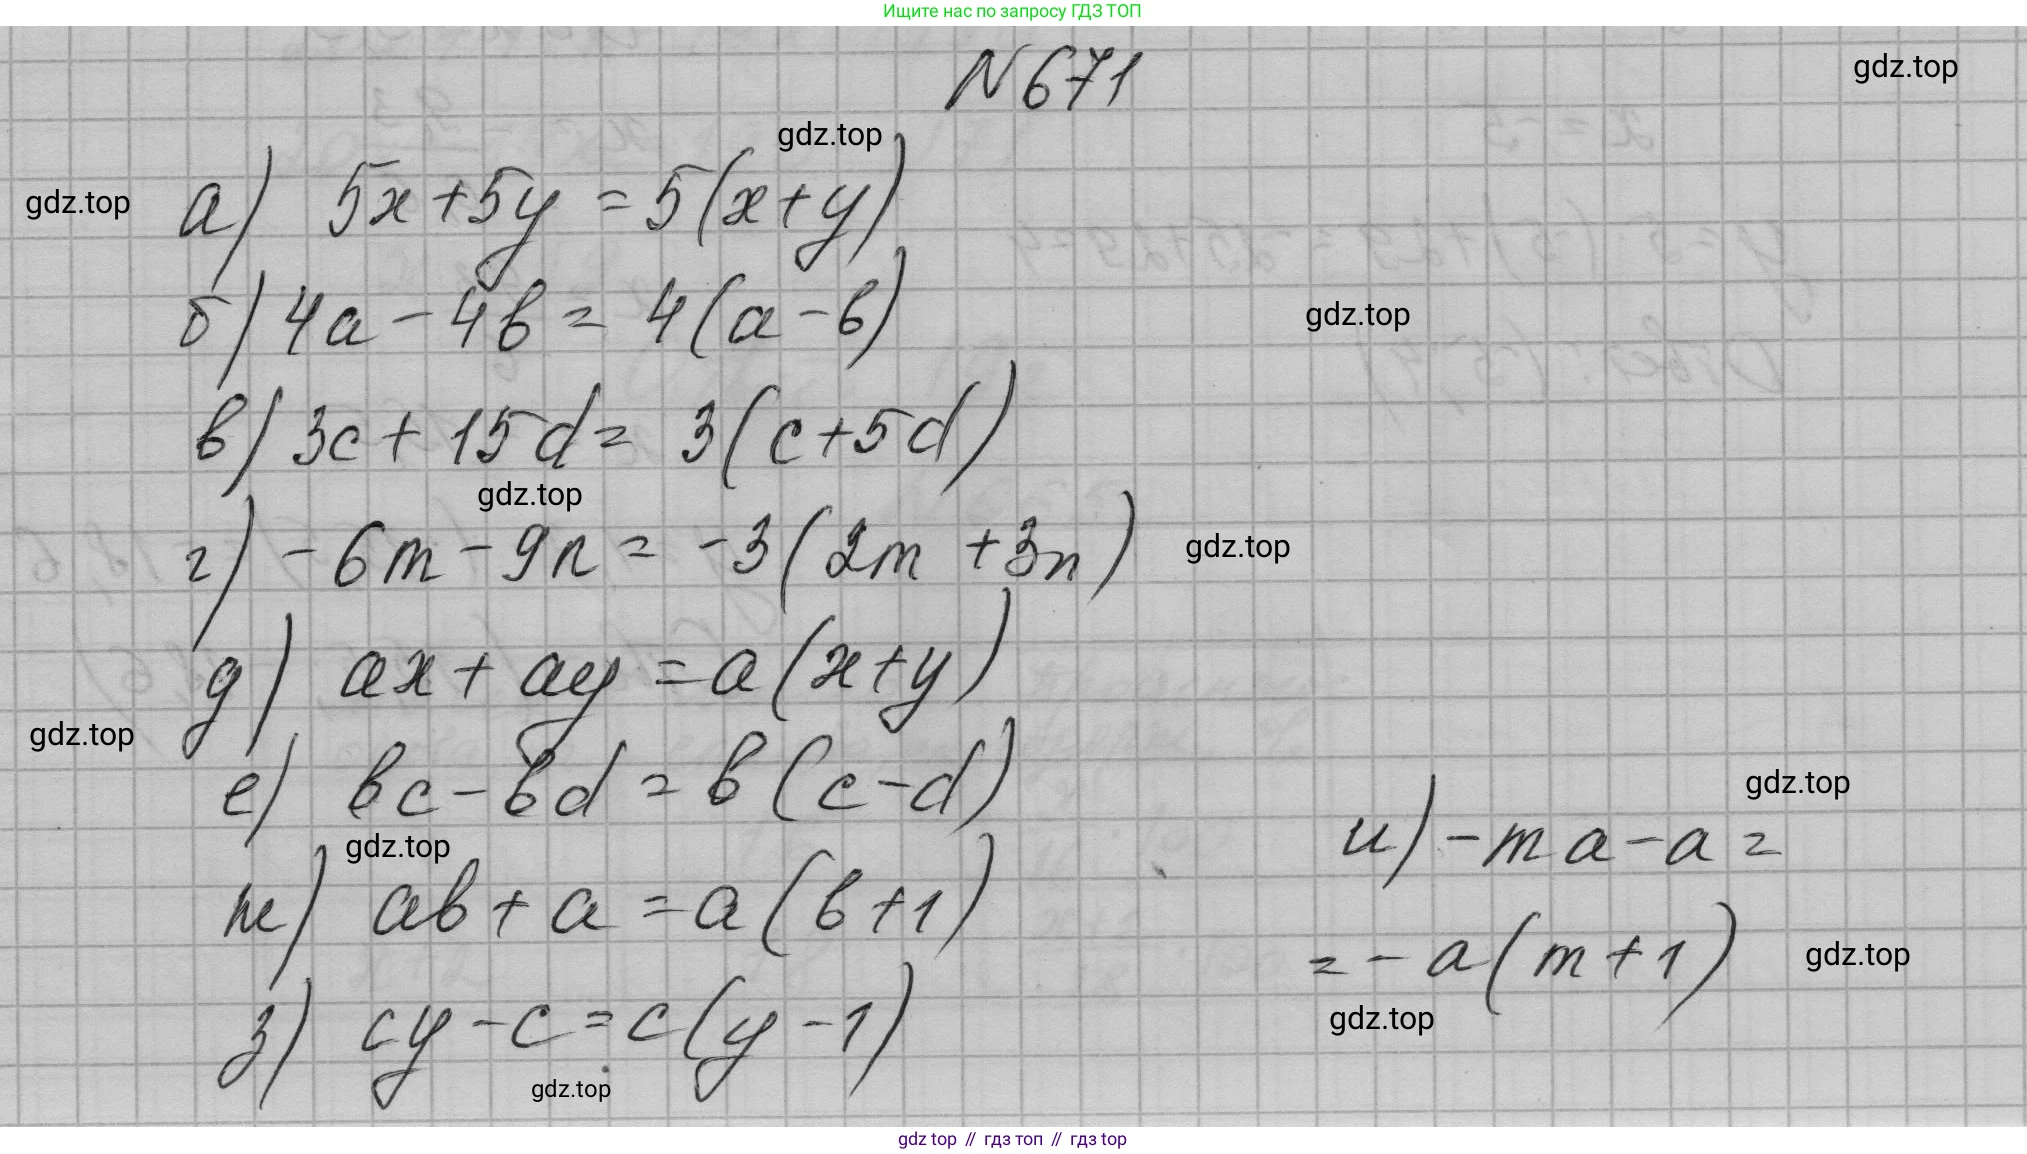 Ищите нас по запросу ГДЗ ТОП
N671
gdz.top
gdz.top
gdz.top
а) 5x+5y=5(x+y)
б) 4a-4b=4(a-b)
gdz.top
в) 3c+15d=3(c+5d)
gdz.top
г) -6m-9n=-3(2m+3n)
gdz.top
д) ax+ay=a(x+y)
gdz.top
е) bc-bd=b(c-d)
gdz.top
ж) ab+a=a(b+1)
з) cy-c=c(y-1)
gdz.top
gdz.top
и) -ma-a=
=-a(m+1)
gdz.top
gdz.top
gdz top // гдз топ // гдз top